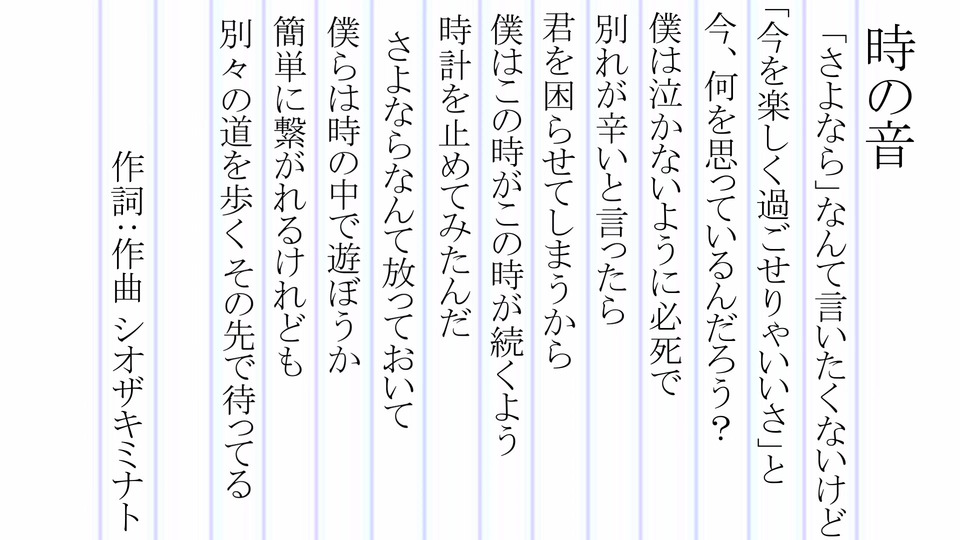 時の音
「さよなら」なんて言いたくないけど
「今を楽しく過ごせりゃいいさ」と
今、何を思っているんだろう？
僕は泣かないように必死で
別れが辛いと言ったら
君を困らせてしまうから
僕はこの時がこの時が続くよう
時計を止めてみたんだ
さよならなんて放っておいて
僕らは時の中で遊ぼうか
簡単に繋がれるけれども
別々の道を歩くその先で待ってる
作詞：作曲 シオザキミナト